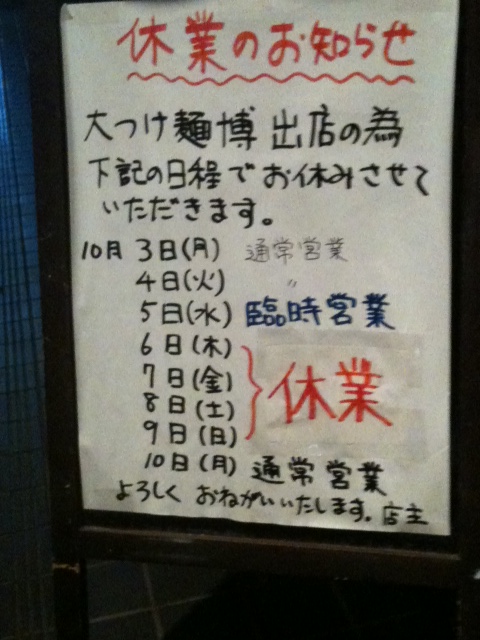 休業のお知らせ
大つけ麺博 出店の為
下記の日程でお休みさせて
いただきます。
10月 3日(月) 通常営業
4日(火) 〃
5日(水) 臨時営業
6日(木)
7日(金) 休業
8日(土)
9日(日)
10日(月) 通常営業
よろしく おねがいいたします。店主